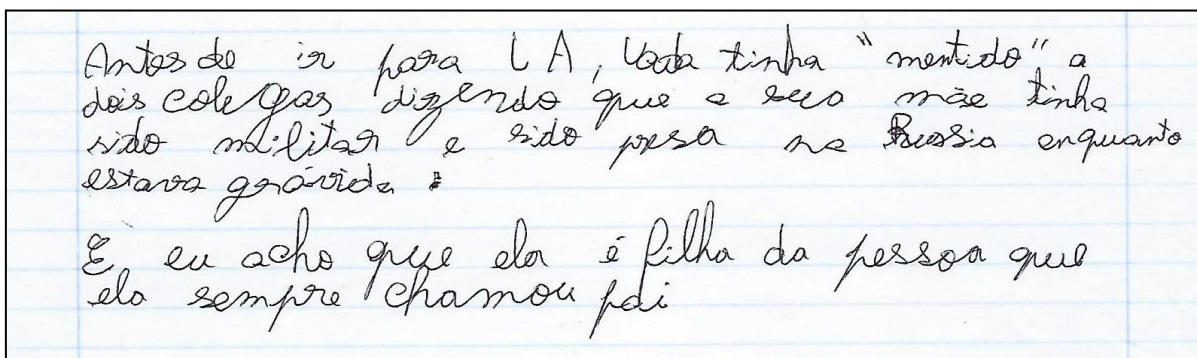 Antes de ir para LA, Vada tinha "mentido" a
dois colegas dizendo que a sua mãe tinha
sido militar e sido presa na Russia enquanto
estava grávida.
E eu acho que ela é filha da pessoa que
ela sempre chamou pai